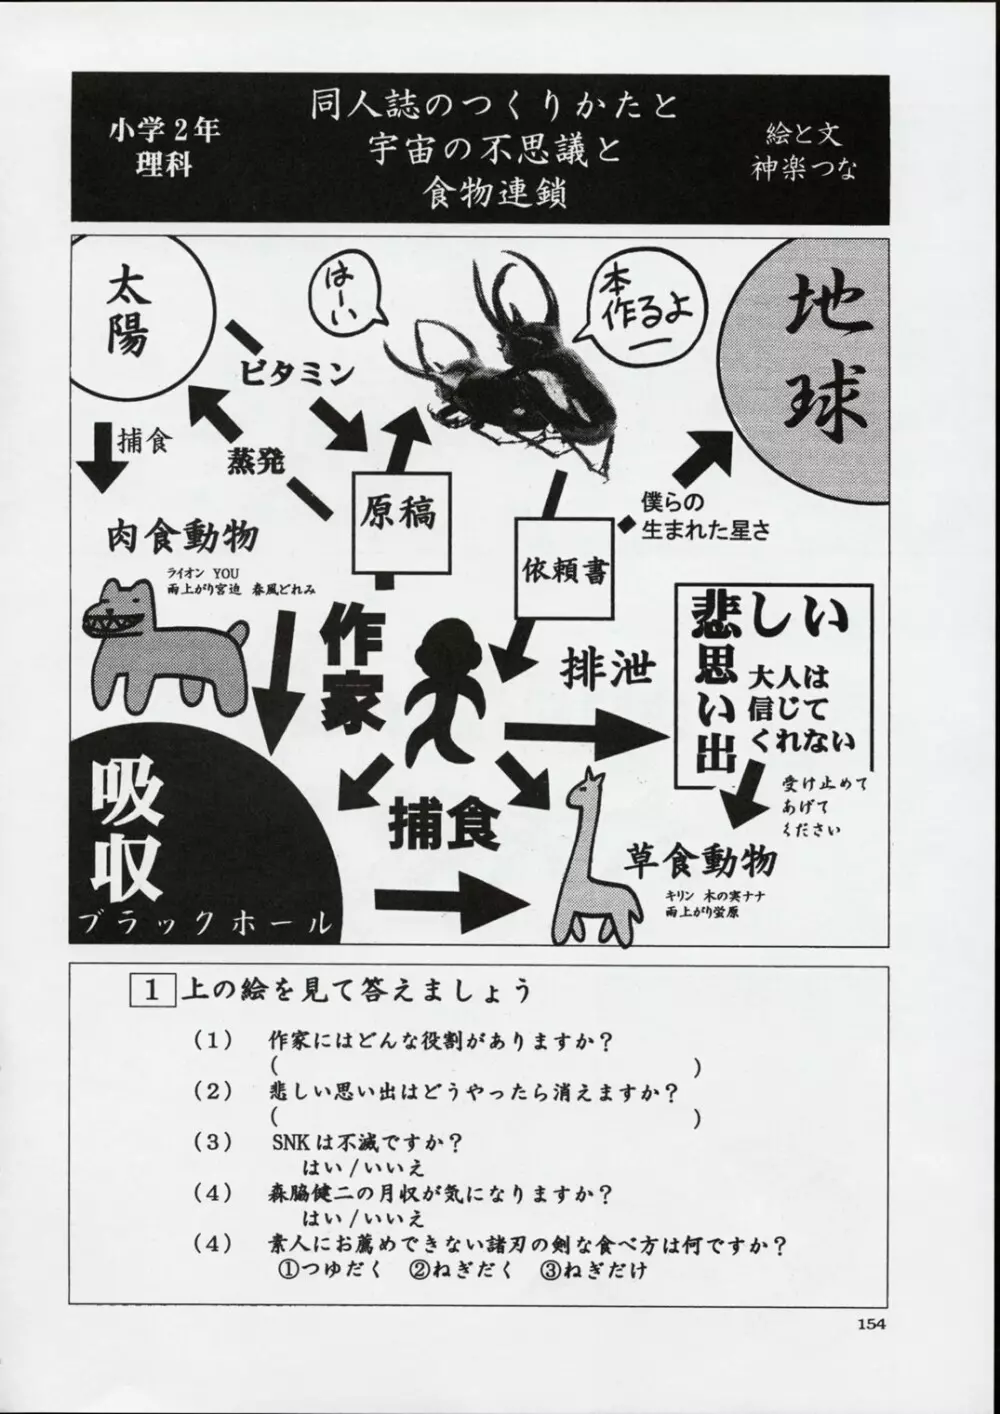 小学2年
理科
同人誌のつくりかたと
宇宙の不思議と
食物連鎖
絵と文
神楽つな
太陽
はーい
本
作るよ
ー
地球
ビタミン
捕食
蒸発
原稿
僕らの
生まれた星さ
肉食動物
ライオン YOU
雨上がり宮迫 春風どれみ
依頼書
作家
排泄
悲しい
思い出
大人は
信じて
くれない
受け止めて
あげて
ください
吸収
ブラックホール
捕食
草食動物
キリン 木の実ナナ
雨上がり蛍原
1 上の絵を見て答えましょう
(1) 作家にはどんな役割がありますか?
( )
(2) 悲しい思い出はどうやったら消えますか?
( )
(3) SNKは不滅ですか?
はい/いいえ
(4) 森脇健二の月収が気になりますか?
はい/いいえ
(4) 素人にお薦めできない諸刃の剣な食べ方は何ですか?
①つゆだく ②ねぎだく ③ねぎだけ
154